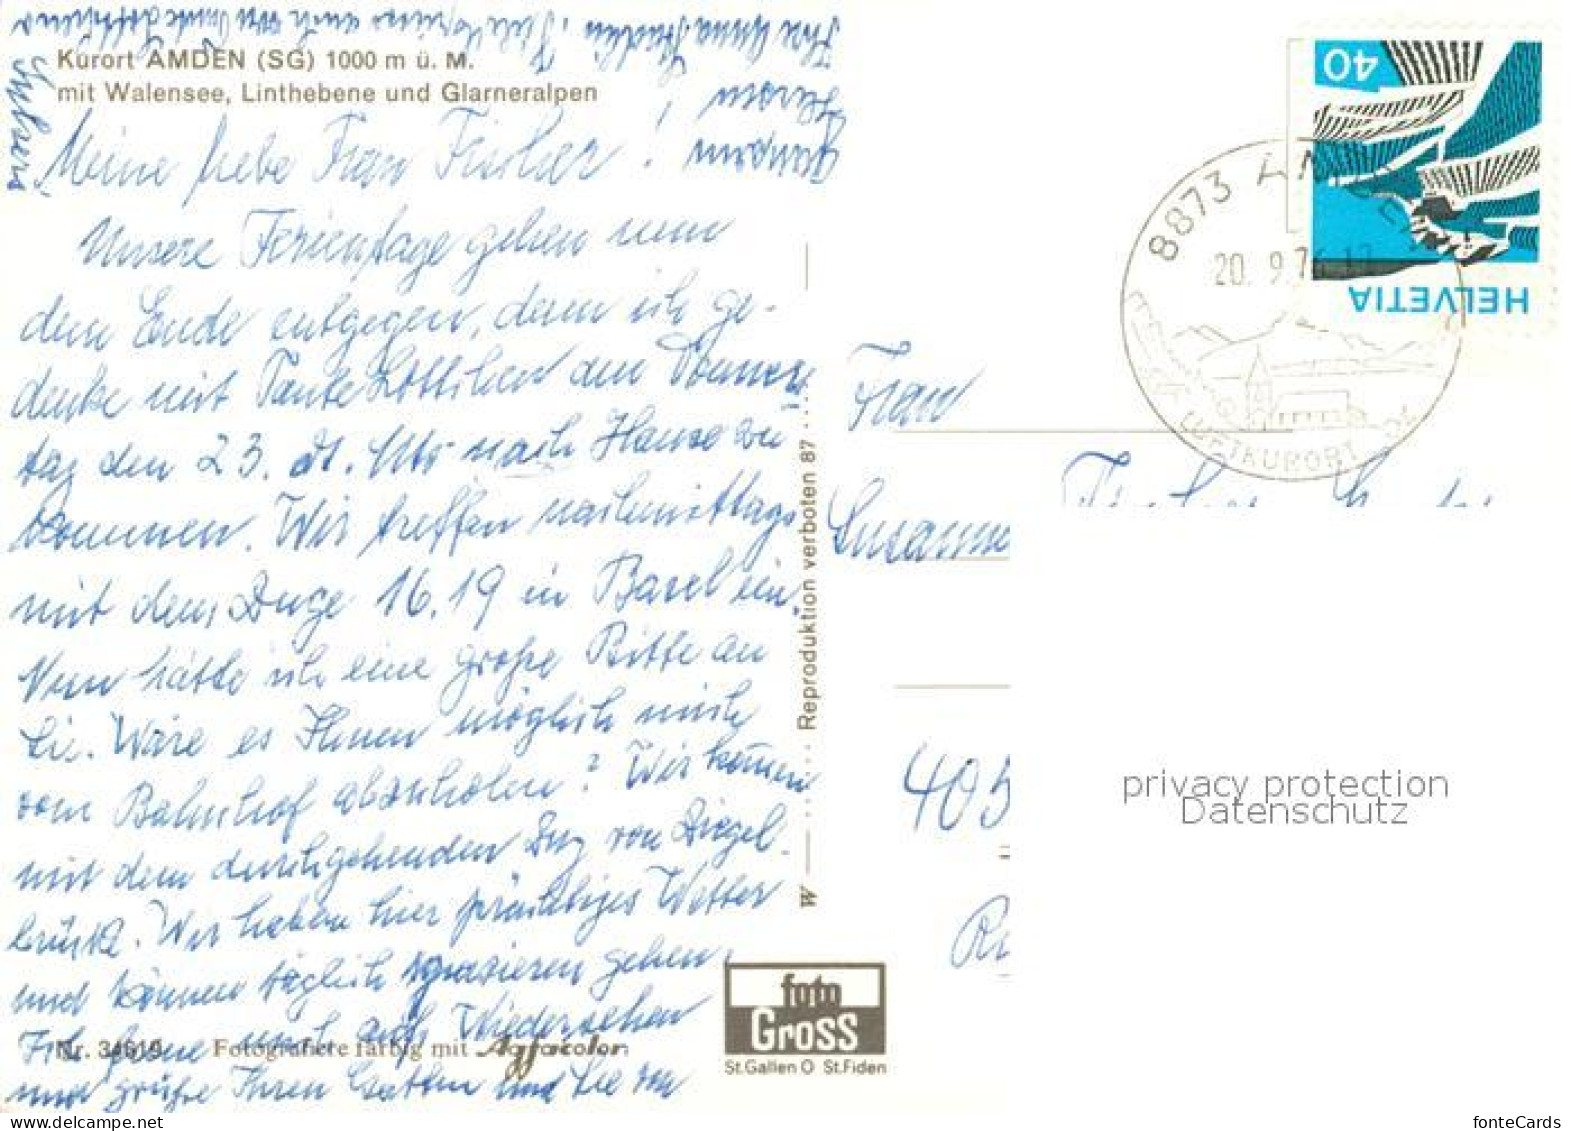 Kurort AMDEN (SG) 1000 m ü. M.
mit Walensee, Linthebene und Glarneralpen
Meine liebe Frau Fischer!
Unsere Ferientage gehen nun
dem Ende entgegen, denn ich ge-
denke mit Tante Lottchen am Donners
tag den 23. nach Hause zu
kommen. Wir treffen nachmittags
mit dem Zuge 16.19 in Basel ein.
Nun hätte ich eine große Bitte an
Sie. Wäre es Ihnen möglich mich
vom Bahnhof abzuholen? Wir kommen
mit dem durchgehenden Zug von Ziegel-
brücke. Wir haben hier prächtiges Wetter
und können täglich spazieren gehen.
Ich freue mich aufs Wiedersehen
und grüße Ihren Gatten und Sie von
ganzem
Herzen
Ihre Anna
Nr. 34619 Fotografiere farbig mit Agfacolor
W Reproduktion verboten 87
foto
GROSS
St.Gallen O St.Fiden
40
HELVETIA
8873 AMDEN
20. 9.76
LUFTKURORT
Frau
Susanne
Fischer
405
privacy protection
Datenschutz
fonteCards